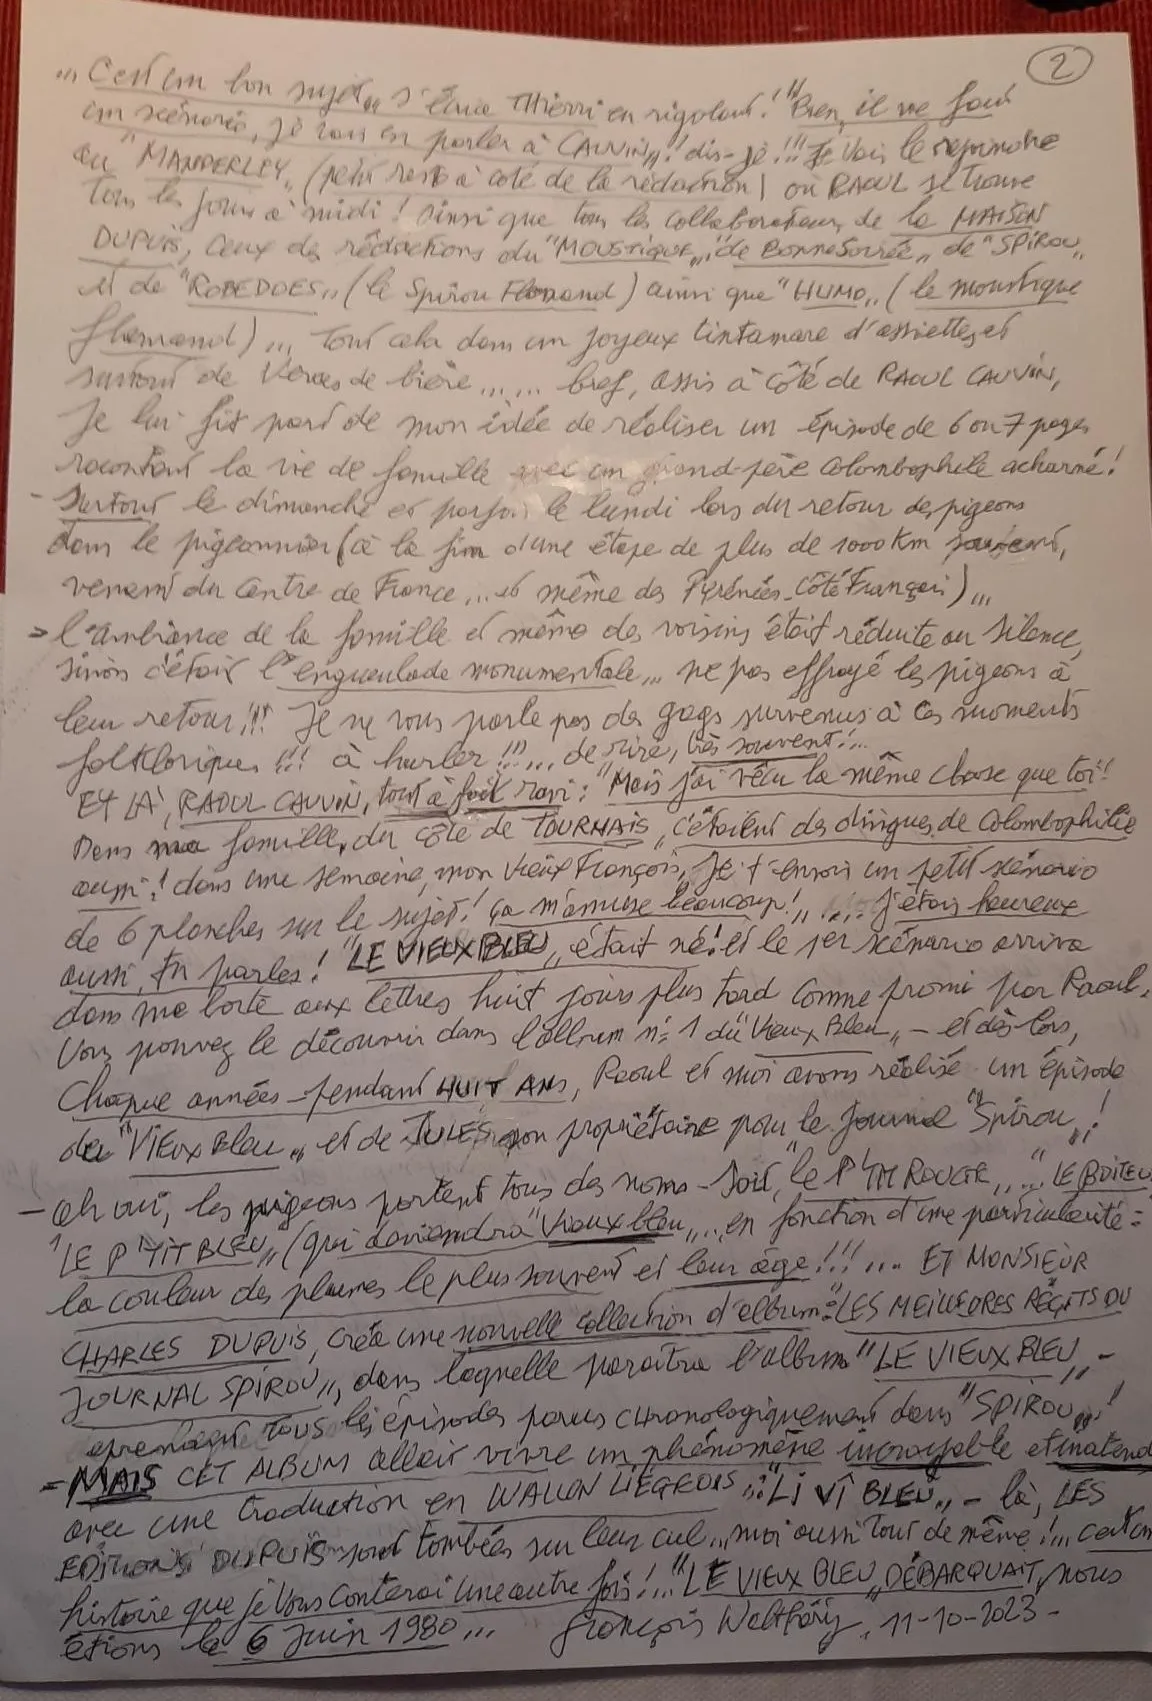 2
... C'est un bon sujet,, s'écria Thierri en rigolant! "Bien, il me faut
un scénario, je vais en parler à CAUVIN,,! dis-je!!! Je vais le rejoindre
au "MANDERLEY,, (petit resto à coté de la rédaction) où RAOUL se trouve
tous les jours à midi! ainsi que tous les collaborateurs de la MAISON
DUPUIS, Ceux des rédactions du "MOUSTIQUE,, de BONNE SOIRÉE,, de "SPIROU,,
et de "ROBEDOES,, (le Spirou Flamand) ainsi que "HUMO,, (le moustique
flamand)... Tout cela dans un joyeux tintamare d'assiettes et
surtout de Verres de bière...... bref, assis à côté de RAOUL CAUVIN,
Je lui fis part de mon idée de réaliser un épisode de 6 ou 7 pages
racontant la vie de famille avec un grand-père Colombophile acharné!
- Surtout le dimanche et parfois le lundi lors du retour des pigeons
dans le pigeonnier (à la fin d'une étape de plus de 1000 Km souvent,
venant du Centre de France... et même des Pyrénées - côté Français)...
> l'ambiance de la famille et même des voisins était réduite au silence,
sinon c'était l'engueulade monumentale... ne pas effrayé les pigeons à
leur retour!!! Je ne vous parle pas des gags survenus à ces moments
folkloriques!!! à hurler!!!... de rire, très souvent!...
ET LÀ, RAOUL CAUVIN, tout à fait ravi: "Mais j'ai vécu la même chose que toi!
Dans ma famille, du côté de TOURNAIS, c'étaient des dingues de Colombophilie
aussi! dans une semaine, mon vieux François, je t'envoie un petit scénario
de 6 planches sur le sujet! ça m'amuse beaucoup!,, J'étais heureux
aussi, tu parles! "LE VIEUX BLEU,, était né! et le 1er scénario arriva
dans ma boite aux lettres huit jours plus tard comme promi par Raoul.
Vous pouvez le découvrir dans l'album n: 1 du "Vieux Bleu,, - et dès lors,
Chaque années - pendant HUIT ANS, Raoul et moi avons réalisé un épisode
du "VIEUX Bleu,, et de JULES son propriétaire pour le Journal "Spirou,,!
- Ah oui, les pigeons portent tous des noms - Soit, "le P'TIT ROUGE,,... "LE BOITEU
"LE P'TIT BLEU,, (qui deviendra "Vieux bleu,,... en fonction d'une particularité:
la couleur des plumes le plus souvent et leur âge!!!... ET MONSIEUR
CHARLES DUPUIS, créa une nouvelle collection d'album: "LES MEILLEURES RÉCITS DU
JOURNAL SPIROU,,, dans laquelle paraîtra l'album "LE VIEUX BLEU,, -
reprenant TOUS les épisodes parus CHRONOLOGIQUEMENT dans "SPIROU,,!
- MAIS CET ALBUM allait vivre un phénomène incroyable et inatend
avec une traduction en WALLON LIÉGEOIS,,: "Li VÎ BLEU,, - là, LES
EDITIONS DUPUIS sont tombées sur leur cul... moi aussi tout de même!... c'est un
histoire que je Vous conterai une autre fois!... "LE VIEUX BLEU,, DÉBARQUAIT, nous
étions le 6 Juin 1980... François Walthéry, 11-10-2023 -